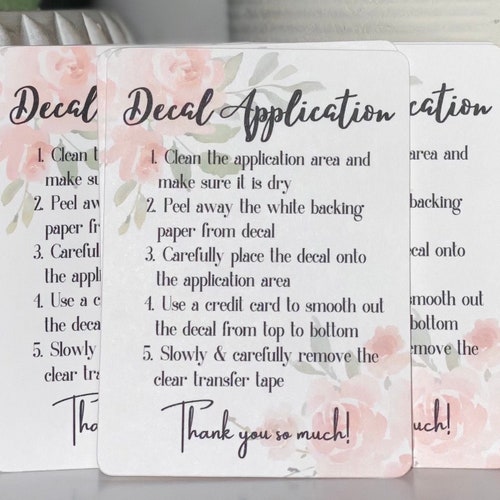 Decal Application
1. Clean the application area and
make sure it is dry
2. Peel away the white backing
paper from decal
3. Carefully place the decal onto
the application area
4. Use a credit card to smooth out
the decal from top to bottom
5. Slowly & carefully remove the
clear transfer tape
Thank you so much!
Decal
1. Clean
make
2. Peel
paper
3. Careful
the
4. Use a
the
5. Slowly
clear
area and
backing
onto
smooth out
bottom
remove the
much!